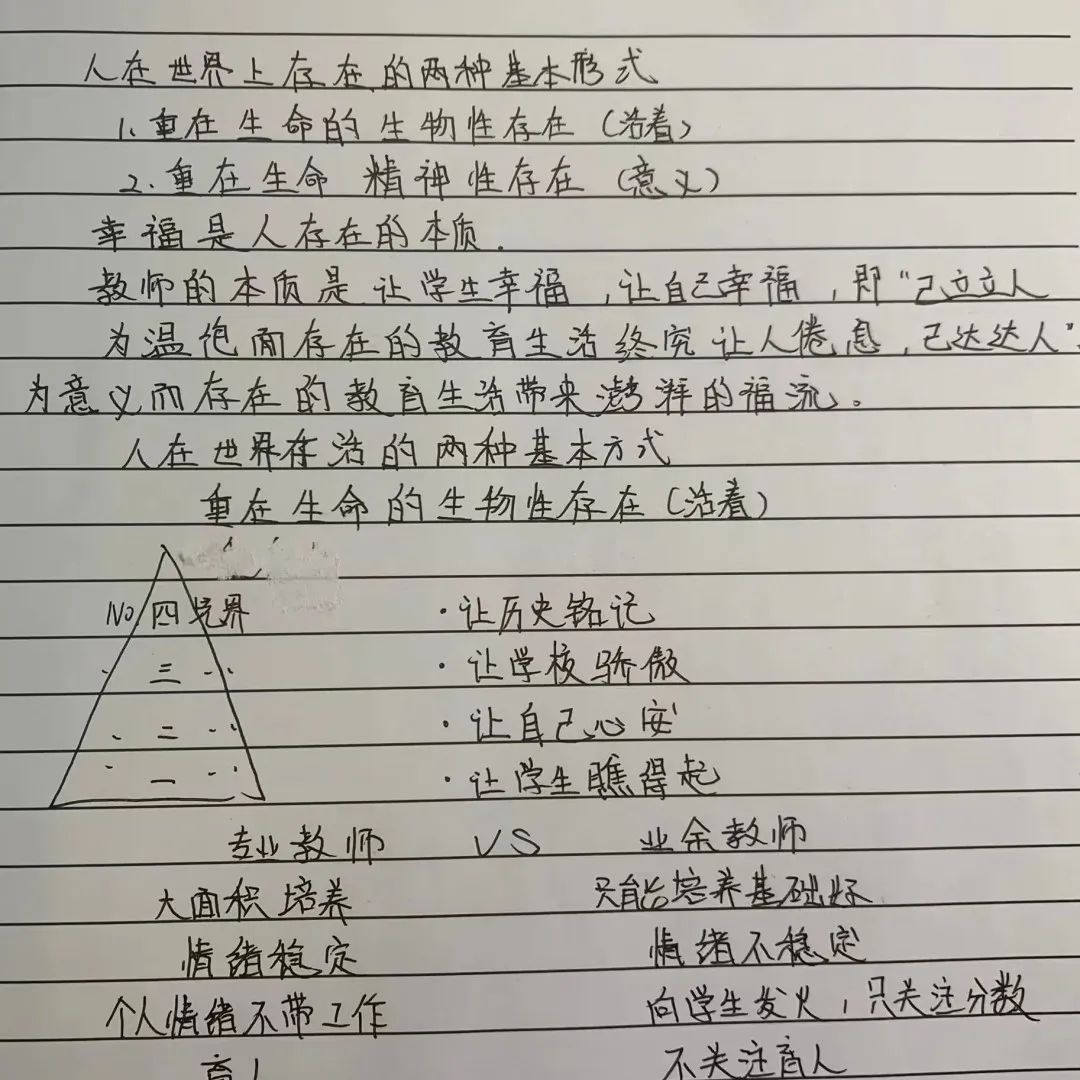 人在世界上存在的两种基本形式
1. 重在生命的生物性存在（活着）
2. 重在生命 精神性存在（意义）
幸福是人存在的本质.
教师的本质是让学生幸福，让自己幸福，即“己立立人
为温饱而存在的教育生活终究让人倦怠，己达达人”.
为意义而存在的教育生活带来澎湃的福流。
人在世界存活的两种基本方式
重在生命的生物性存在（活着）
No 四境界 ·让历史铭记
三 ·让学校骄傲
二 ·让自己心安
一 ·让学生瞧得起
专业教师 VS 业余教师
大面积培养 只能培养基础好
情绪稳定 情绪不稳定
个人情绪不带工作 向学生发火，只关注分数
育人 不关注育人